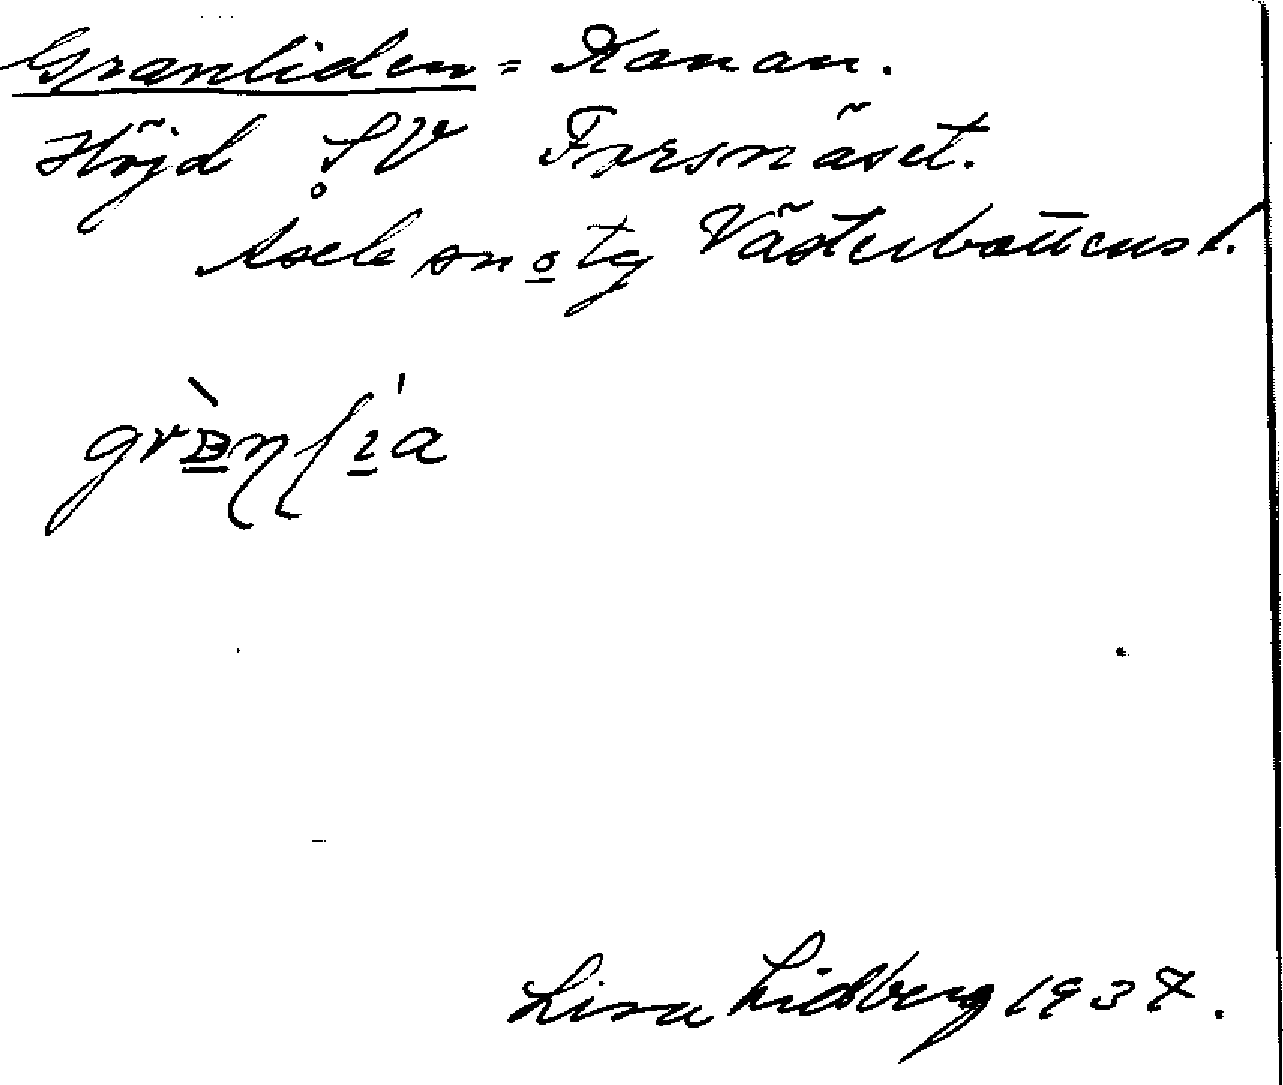 Granliden = Kanan.
Höjd SV Forsnäset.
Åsele sn o tg Västerbottens l.
Lisa Lidberg 1937.